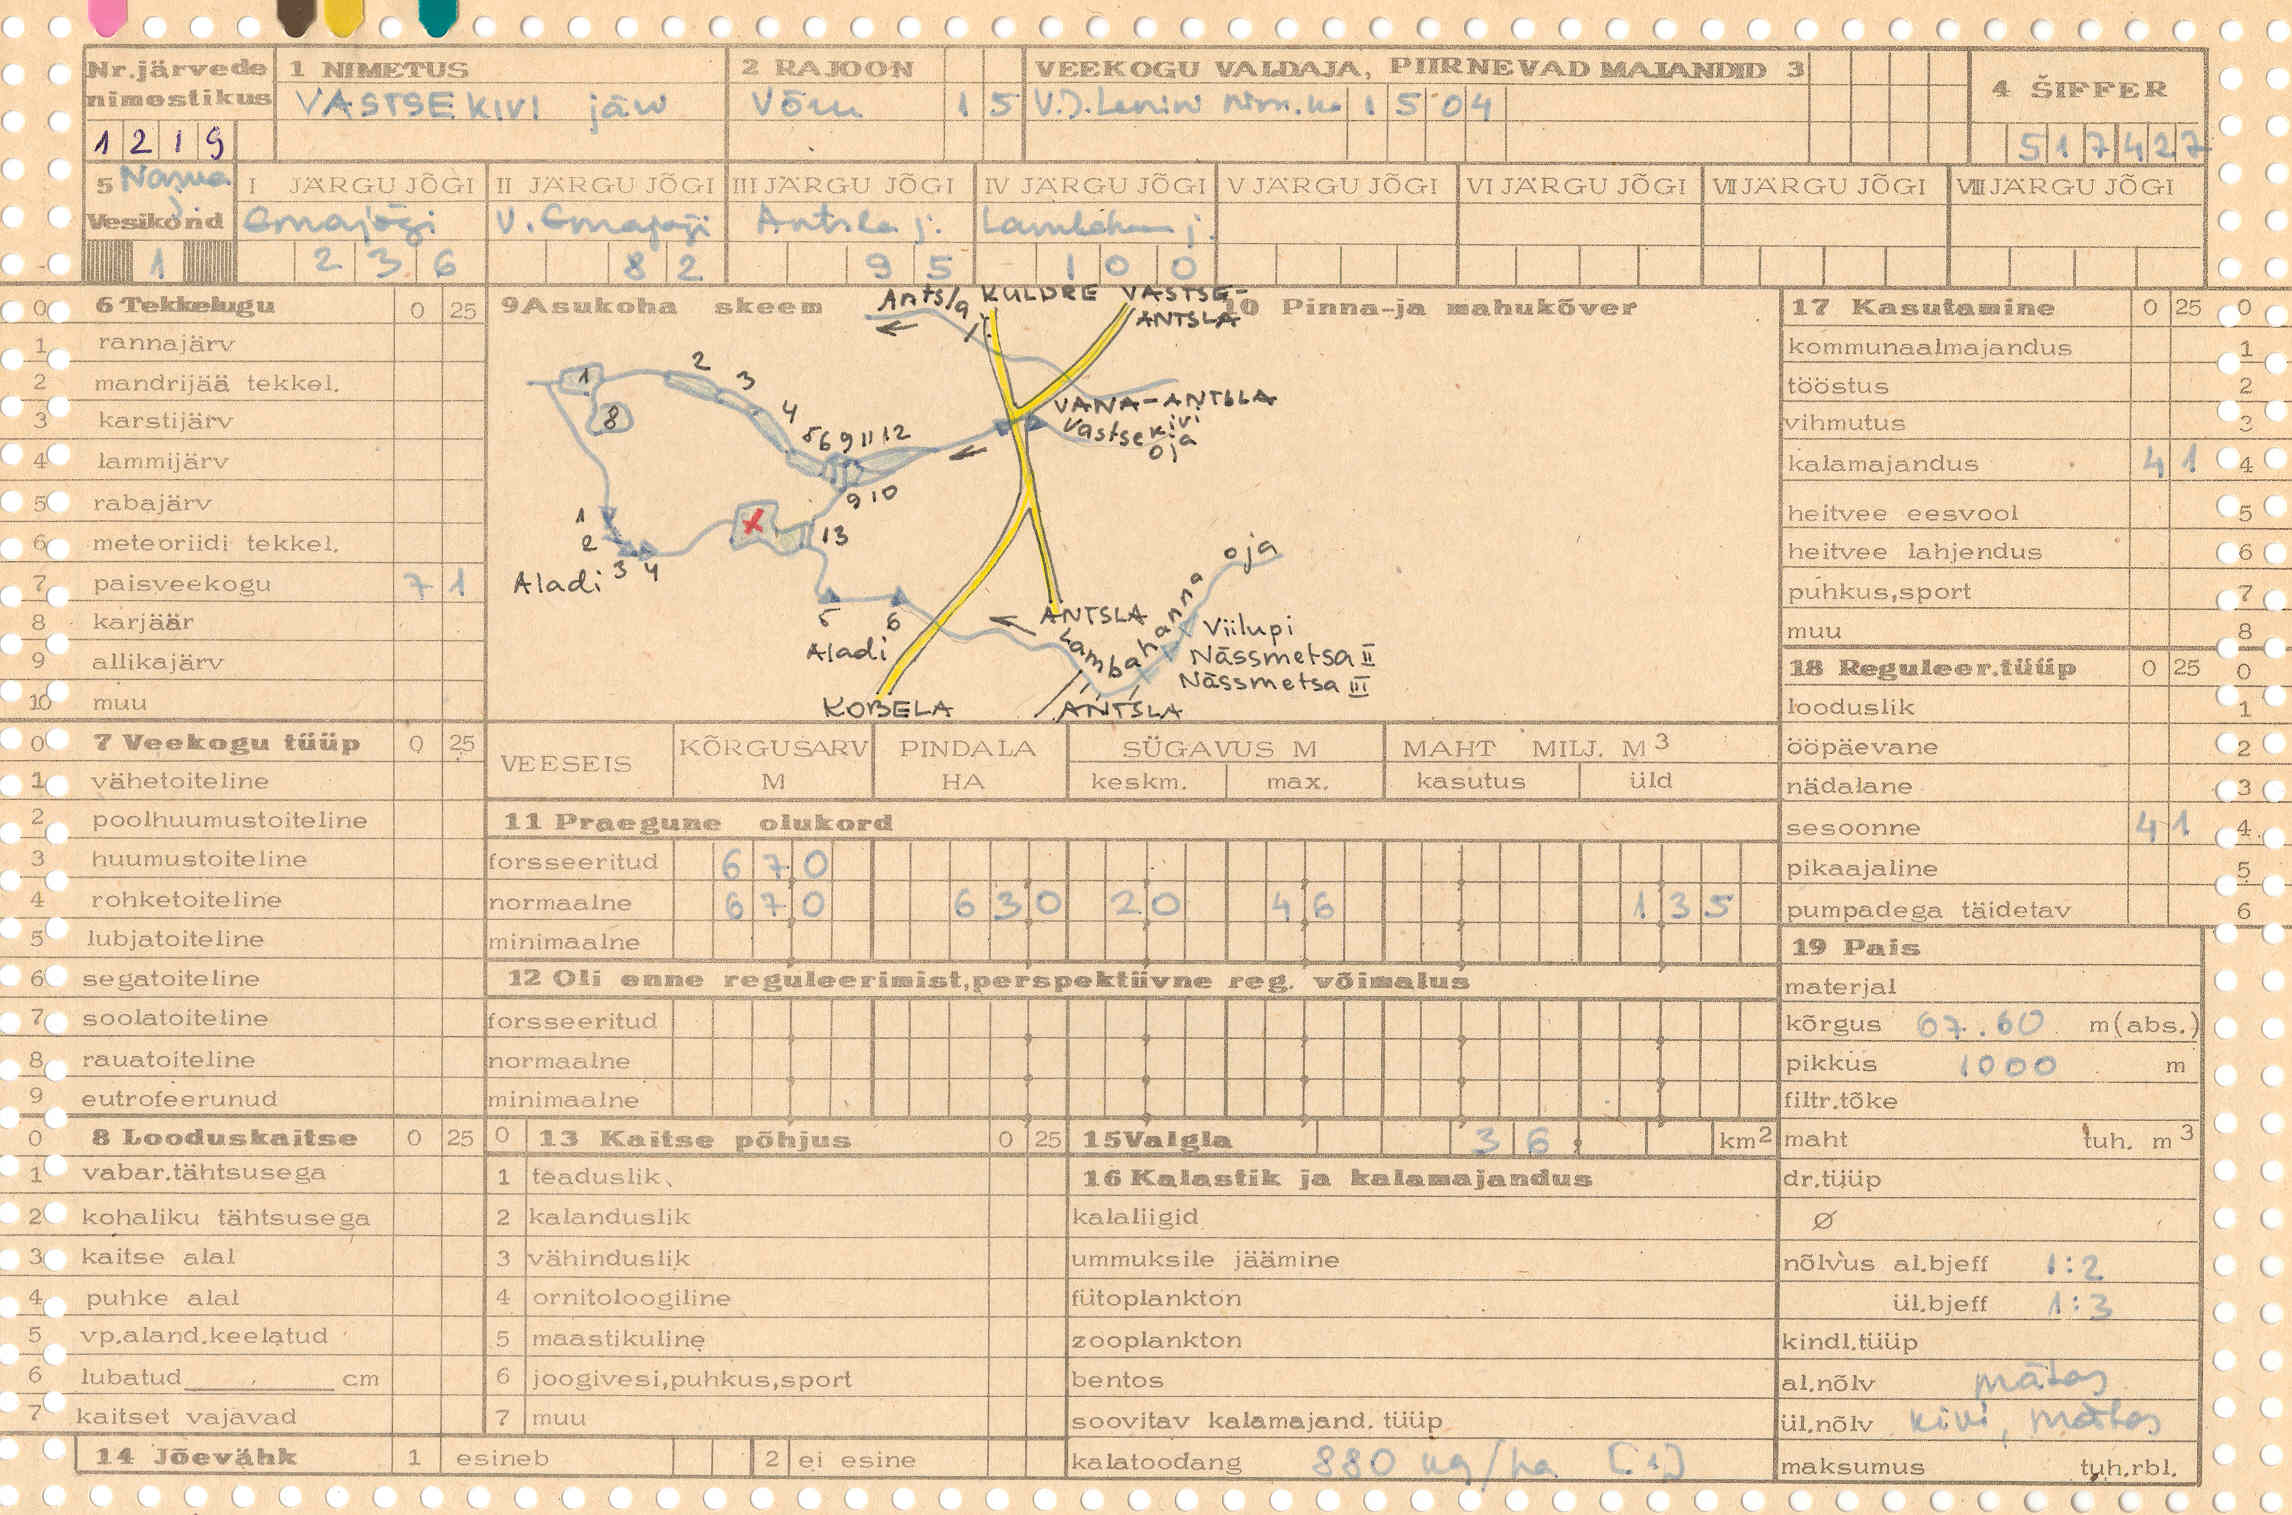 Nr.järvede nimestikus
1219
1 NIMETUS
VASTSEKIVI järv
2 RAJOON
Võru 15
VEEKOGU VALDAJA, PIIRNEVAD MAJANDID 3
V.I.Lenini nim. 1504
4 ŠIFFER
517427
5 Narva j.
Vesikond
1
I JÄRGU JÕGI
Emajõgi
236
II JÄRGU JÕGI
V. Emajõgi
82
III JÄRGU JÕGI
Antsla j.
95
IV JÄRGU JÕGI
j.
100
V JÄRGU JÕGI
VI JÄRGU JÕGI
VII JÄRGU JÕGI
VIII JÄRGU JÕGI
0 6 Tekkelugu 0 25
1 rannajärv
2 mandrijää tekkel.
3 karstijärv
4 lammijärv
5 rabajärv
6 meteoriidi tekkel.
7 paisveekogu 7 1
8 karjäär
9 allikajärv
10 muu
9 Asukoha skeem
10 Pinna-ja mahukõver
Antsla j.
KULDRE
VASTSE-ANTSLA
VANA-ANTSLA
Vastsekivi oja
1
8
2
3
4
5 6 9 11 12
9 10
13
1
2
3 4
Aladi
5
6
Aladi
KOBELA
ANTSLA
Lambahanna oja
Viilupi
Nässmetsa II
Nässmetsa III
ANTSLA
17 Kasutamine 0 25 0
kommunaalmajandus 1
tööstus 2
vihmutus 3
kalamajandus 4 1 4
heitvee eesvool 5
heitvee lahjendus 6
puhkus,sport 7
muu 8
18 Reguleer.tüüp 0 25 0
looduslik 1
ööpäevane 2
nädalane 3
sesoonne 4 1 4
pikaajaline 5
pumpadega täidetav 6
0 7 Veekogu tüüp 0 25
1 vähetoiteline
2 poolhuumustoiteline
3 huumustoiteline
4 rohketoiteline
5 lubjatoiteline
6 segatoiteline
7 soolatoiteline
8 rauatoiteline
9 eutrofeerunud
VEESEIS
KÕRGUSARV M
PINDALA HA
SÜGAVUS M
keskm. max.
MAHT MILJ. M3
kasutus üld
11 Praegune olukord
forsseeritud 670
normaalne 670 630 20 46 135
minimaalne
12 Oli enne reguleerimist,perspektiivne reg. võimalus
forsseeritud
normaalne
minimaalne
19 Pais
materjal
kõrgus 67.60 m(abs.)
pikkus 1000 m
filtr.tõke
maht tuh. m3
dr.tüüp
Ø
nõlvus al.bjeff 1:2
ül.bjeff 1:3
kindl.tüüp
al.nõlv mätas
ül.nõlv kivi, mätas
maksumus tuh.rbl.
0 8 Looduskaitse 0 25
1 vabar.tähtsusega
2 kohaliku tähtsusega
3 kaitse alal
4 puhke alal
5 vp.aland.keelatud
6 lubatud______ cm
7 kaitset vajavad
0 13 Kaitse põhjus 0 25
1 teaduslik
2 kalanduslik
3 vähinduslik
4 ornitoloogiline
5 maastikuline
6 joogivesi,puhkus,sport
7 muu
15 Valgla 36. km2
16 Kalastik ja kalamajandus
kalaliigid
ummuksile jäämine
fütoplankton
zooplankton
bentos
soovitav kalamajand. tüüp
kalatoodang 880 kg/ha [1]
14 Jõevähk 1 esineb 2 ei esine